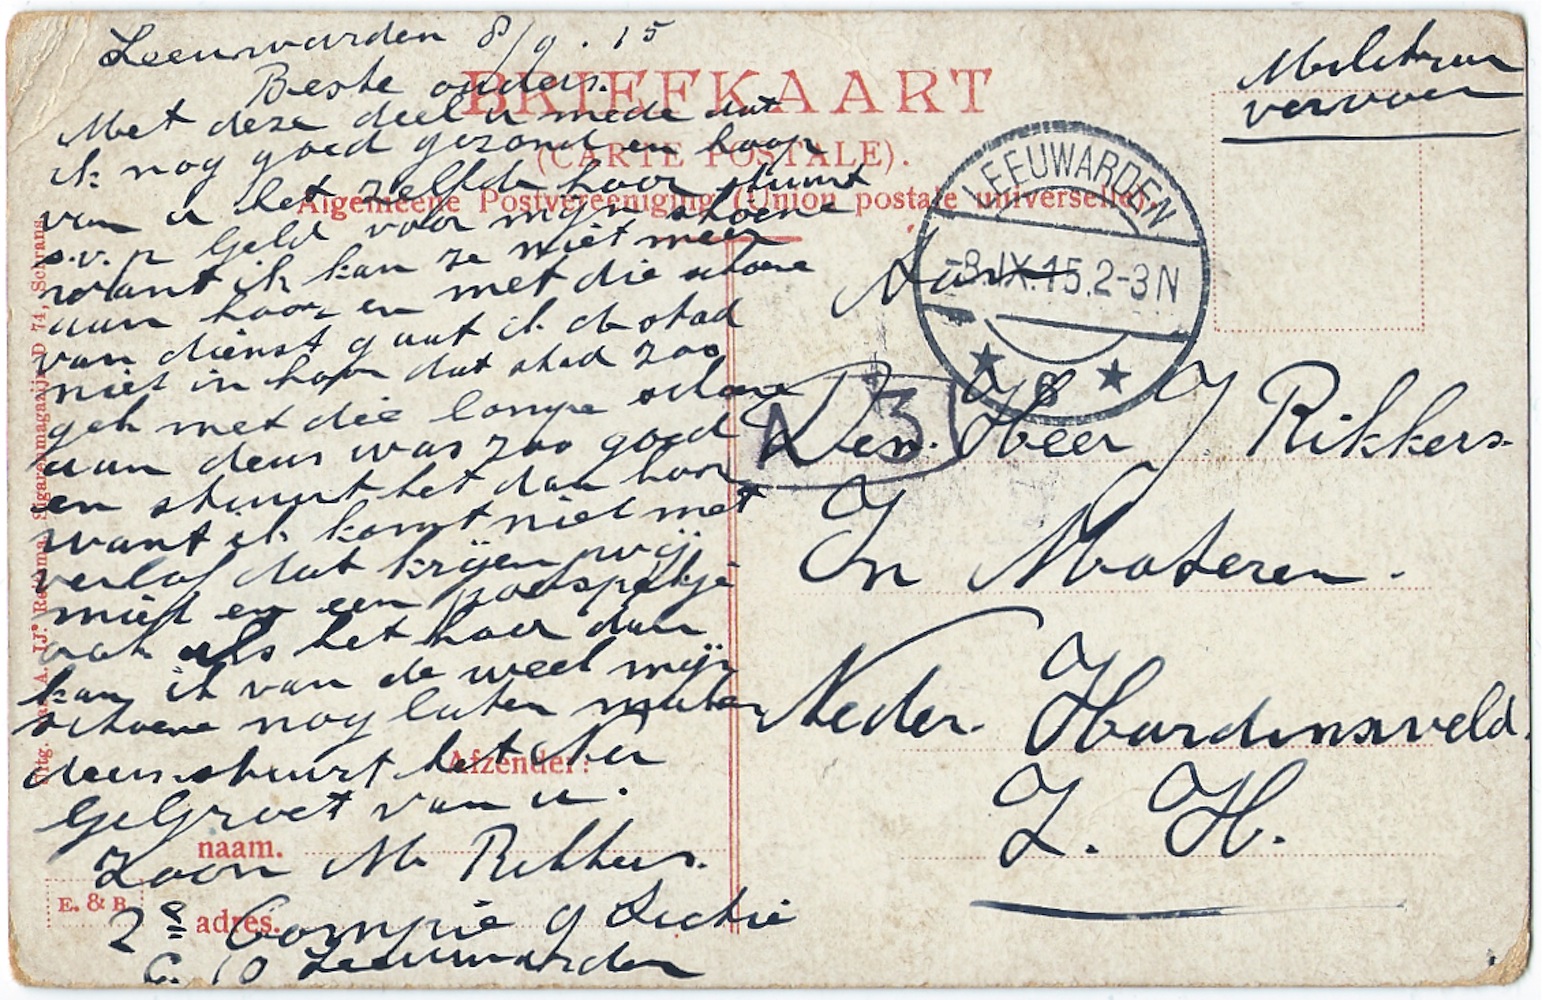 Leeuwarden 8/9.15
Beste ouders.
Met deze deel u mede dat
ik nog goed gezond en hoop
van u het zelfde hoor stuurt
s.v.p geld voor mijn schoene
want ik kan ze niet meer
aan hoor en met die schoene
van dienst gaat ik de stad
niet in hoor dat stad zoo
gek met die lompe schoene
aan deus was zoo goed
en stuurt het dan hoor
want ik komt niet met
verlof dat krijen wij
niet en een poespakje
ook als het hoer dan
kan ik van de week mijn
schoene nog laten maken
deus stuurt het
GeGroet van u.
Zoon M Rikkers.
2e Compie 9 Sectie
C. 10 Leeuwarden
BRIEFKAART
(CARTE POSTALE).
Algemeene Postvereeniging (Union postale universelle).
Militair
vervoer
LEEUWARDEN
-8.IX.15.2-3N
8
Aan
A 3
Den. Heer J Rikkers
In
Neder. Hardinxveld.
Z. H.
Afzender:
naam.
adres.
E. & B.
Sigarenmagazijn D 74, Schrans